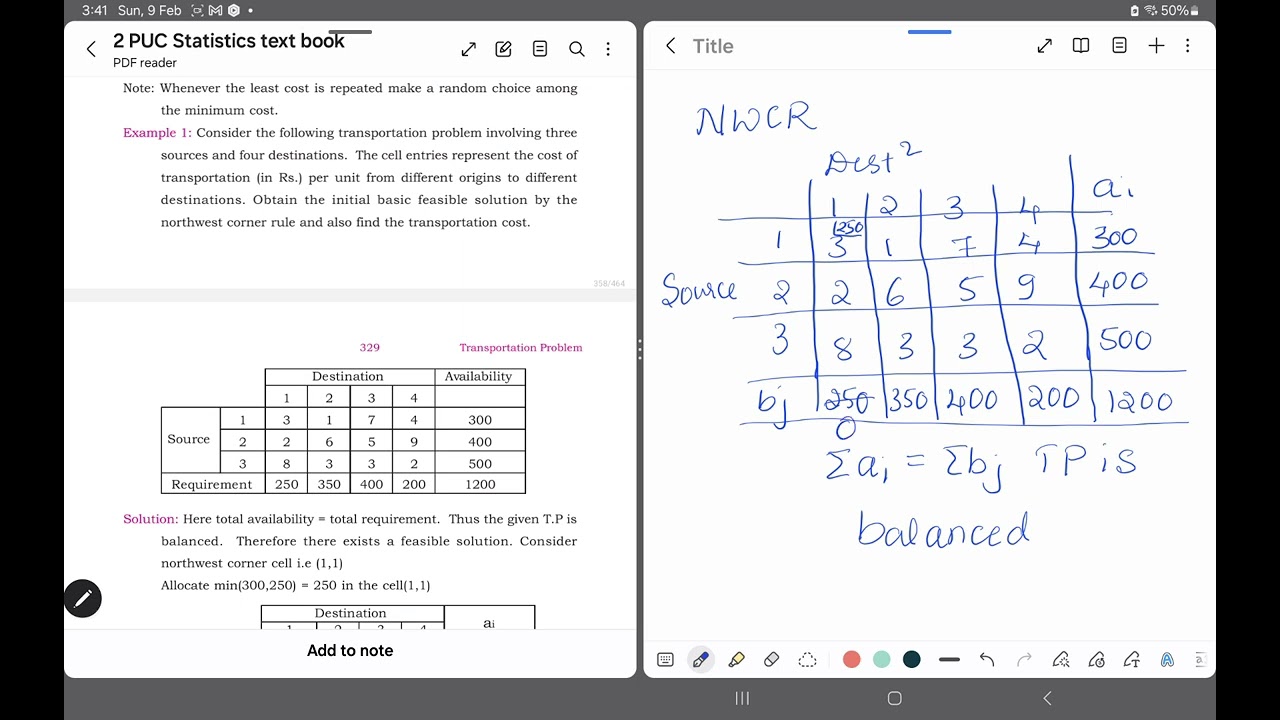 3:41 Sun, 9 Feb
50%
2 PUC Statistics text book
PDF reader
Note: Whenever the least cost is repeated make a random choice among
the minimum cost.
Example 1: Consider the following transportation problem involving three
sources and four destinations. The cell entries represent the cost of
transportation (in Rs.) per unit from different origins to different
destinations. Obtain the initial basic feasible solution by the
northwest corner rule and also find the transportation cost.
358/464
329 Transportation Problem
Destination Availability
1 2 3 4
Source 1 3 1 7 4 300
2 2 6 5 9 400
3 8 3 3 2 500
Requirement 250 350 400 200 1200
Solution: Here total availability = total requirement. Thus the given T.P is
balanced. Therefore there exists a feasible solution. Consider
northwest corner cell i.e (1,1)
Allocate min(300,250) = 250 in the cell(1,1)
Destination ai
Add to note
Title
NWCR
Dest²
1 2 3 4 ai
250
1 3 1 7 4 300
Source 2 2 6 5 9 400
3 8 3 3 2 500
bj 250 350 400 200 1200
0
Σai = Σbj TP is
balanced